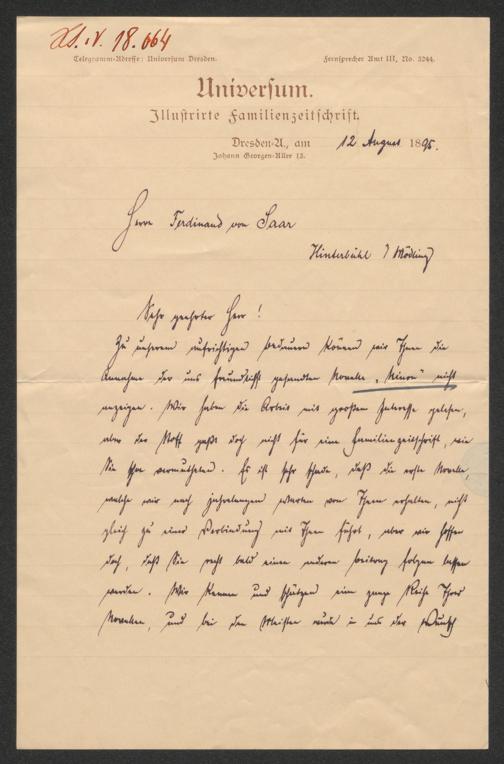 I.N. 18.664
Telegramm-Adresse: Universum Dresden.
Fernsprecher Amt III, No. 3244.
Universum.
Illustrirte Familienzeitschrift.
Dresden-A., am 12 August 1895.
Johann Georgen-Allee 13.
Herrn Ferdinand von Saar
Hinterbühl / Mödling
Sehr geehrter Herr!
Zu unserem aufrichtigen Bedauern können wir Ihnen die
Annahme der uns freundlichst gesandten Novelle „Ninon" nicht
anzeigen. Wir haben die Arbeit mit großem Interesse gelesen,
aber der Stoff paßt doch nicht für eine Familienzeitschrift, wie
Sie schon vermutheten. Es ist sehr schade, daß die erste Novelle,
welche wir nach jahrelangem Warten von Ihnen erhalten, nicht
gleich zu einer Verbindung mit Ihnen führt, aber wir hoffen
doch, daß Sie recht bald einen anderen Beitrag folgen lassen
werden. Wir kennen und schätzen eine ganze Reihe Ihrer
Novellen, und bei den Meisten wurde in uns der Wunsch